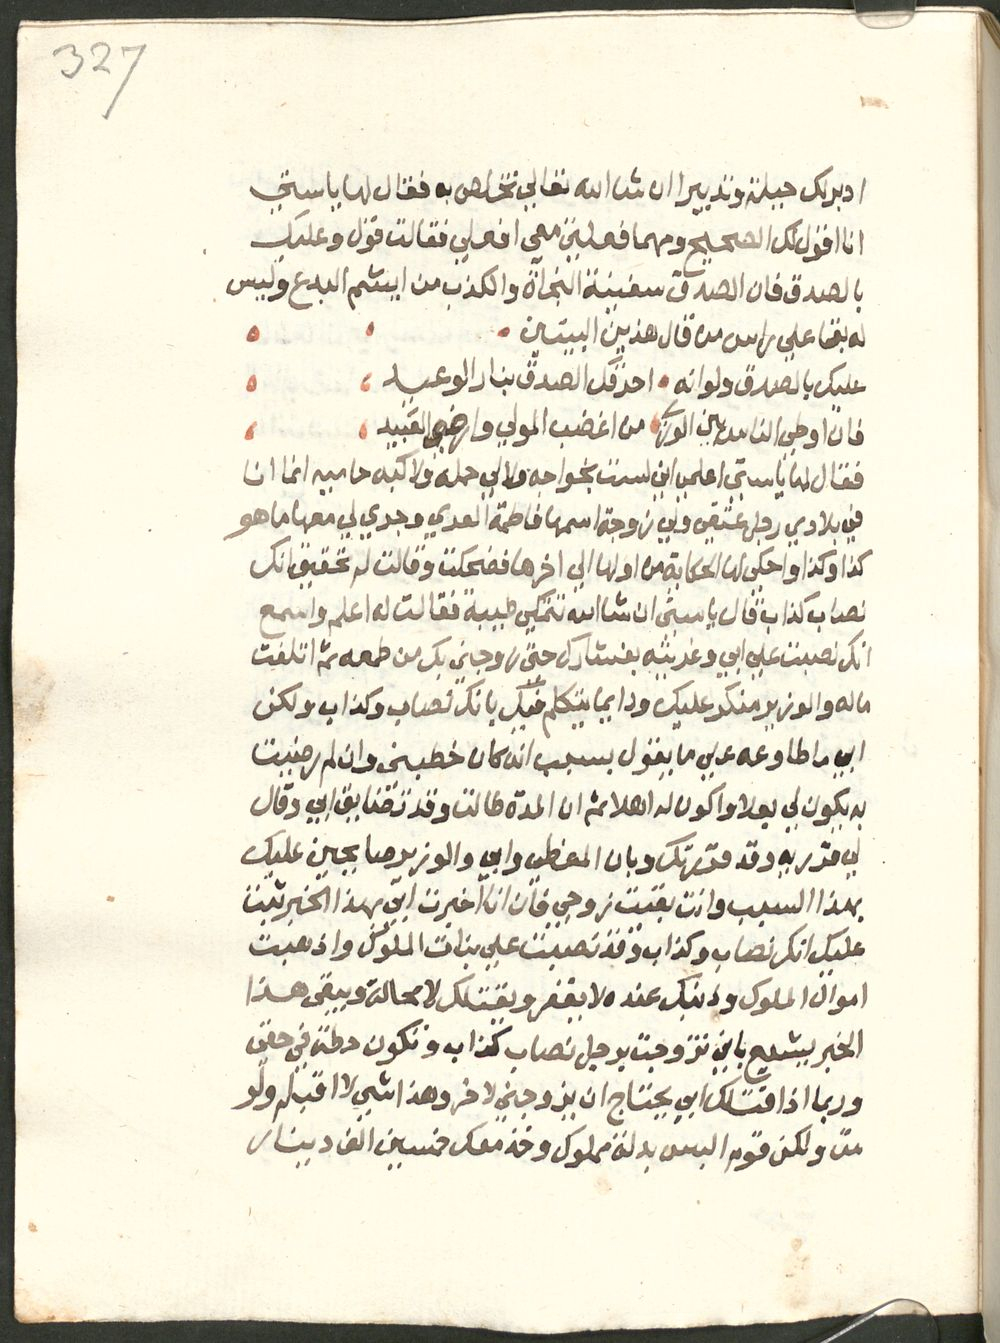 327
ادبر لك حيلة وتدبيرا ان شا الله تعالي تخلص به فقال لها يا ستي
انا اقول لك الصحيح ومهما فعلتيه معي افعلي فقالت قول وعليك
بالصدق فان الصدق سفينة النجاة والكذب من ايشم البدع وليس
له بقا علي راس من قال هذين البيتين
عليك بالصدق ولو انه احرقك الصدق بنار الوعيد
فان اوطي الناس بين الوري من اغضب المولي وارضي العبيد
فقال لها يا ستي اعلمي اني لست بخواجه ولا لي حمله ولا كبه حاميه انما انا
في بلادي رجل عتقي ولي زوجة اسمها فاطمة العدي وجدي لي معها ما هو
كذا وكذا واحكي لها الحكاية من اولها الي اخرها فضحكت وقالت له تحقيق انك
نصاب كذاب قال يا ستي ان شا الله تكي طيبة فقالت له اعلم واسمع
انك نصبت علي ابي وغريته بفشارك حتي زوجني بك من طمعه ثم اتلفت
ماله والوزير منكر عليك ودايما يتكلم فيك بانك نصاب وكذاب ولكن
ابي ما طاوعه علي ما يقول بسبب انه كان خطبني وان لم رضيت
به يكون لي بعلا واكون له اهلا ثم ان المدة طالت وقد تضايق ابي وقال
لي قرريه وقد قررتك وبان المغطي وابي والوزير صابحين عليك
بهذا السبب وانت بقيت زوجي فان انا اخبرت ابي بهذا الخبر ثبت
عليك انك نصاب وكذاب وقد نصبت علي بنات الملوك واذهبت
اموال الملوك وذنبك عنده لا يغفر ويقتلك لا محالة ويبقي هذا
الخبر يشيع باني تزوجت برجل نصاب كذاب وتكون حطة في حقي
وربما اذا قتلك ابي يحتاج ان يزوجني لاخر وهذا شي لا اقبله ولو
مت ولكن قوم البس بدلة مملوك وخذ معك خمسين الف دينار